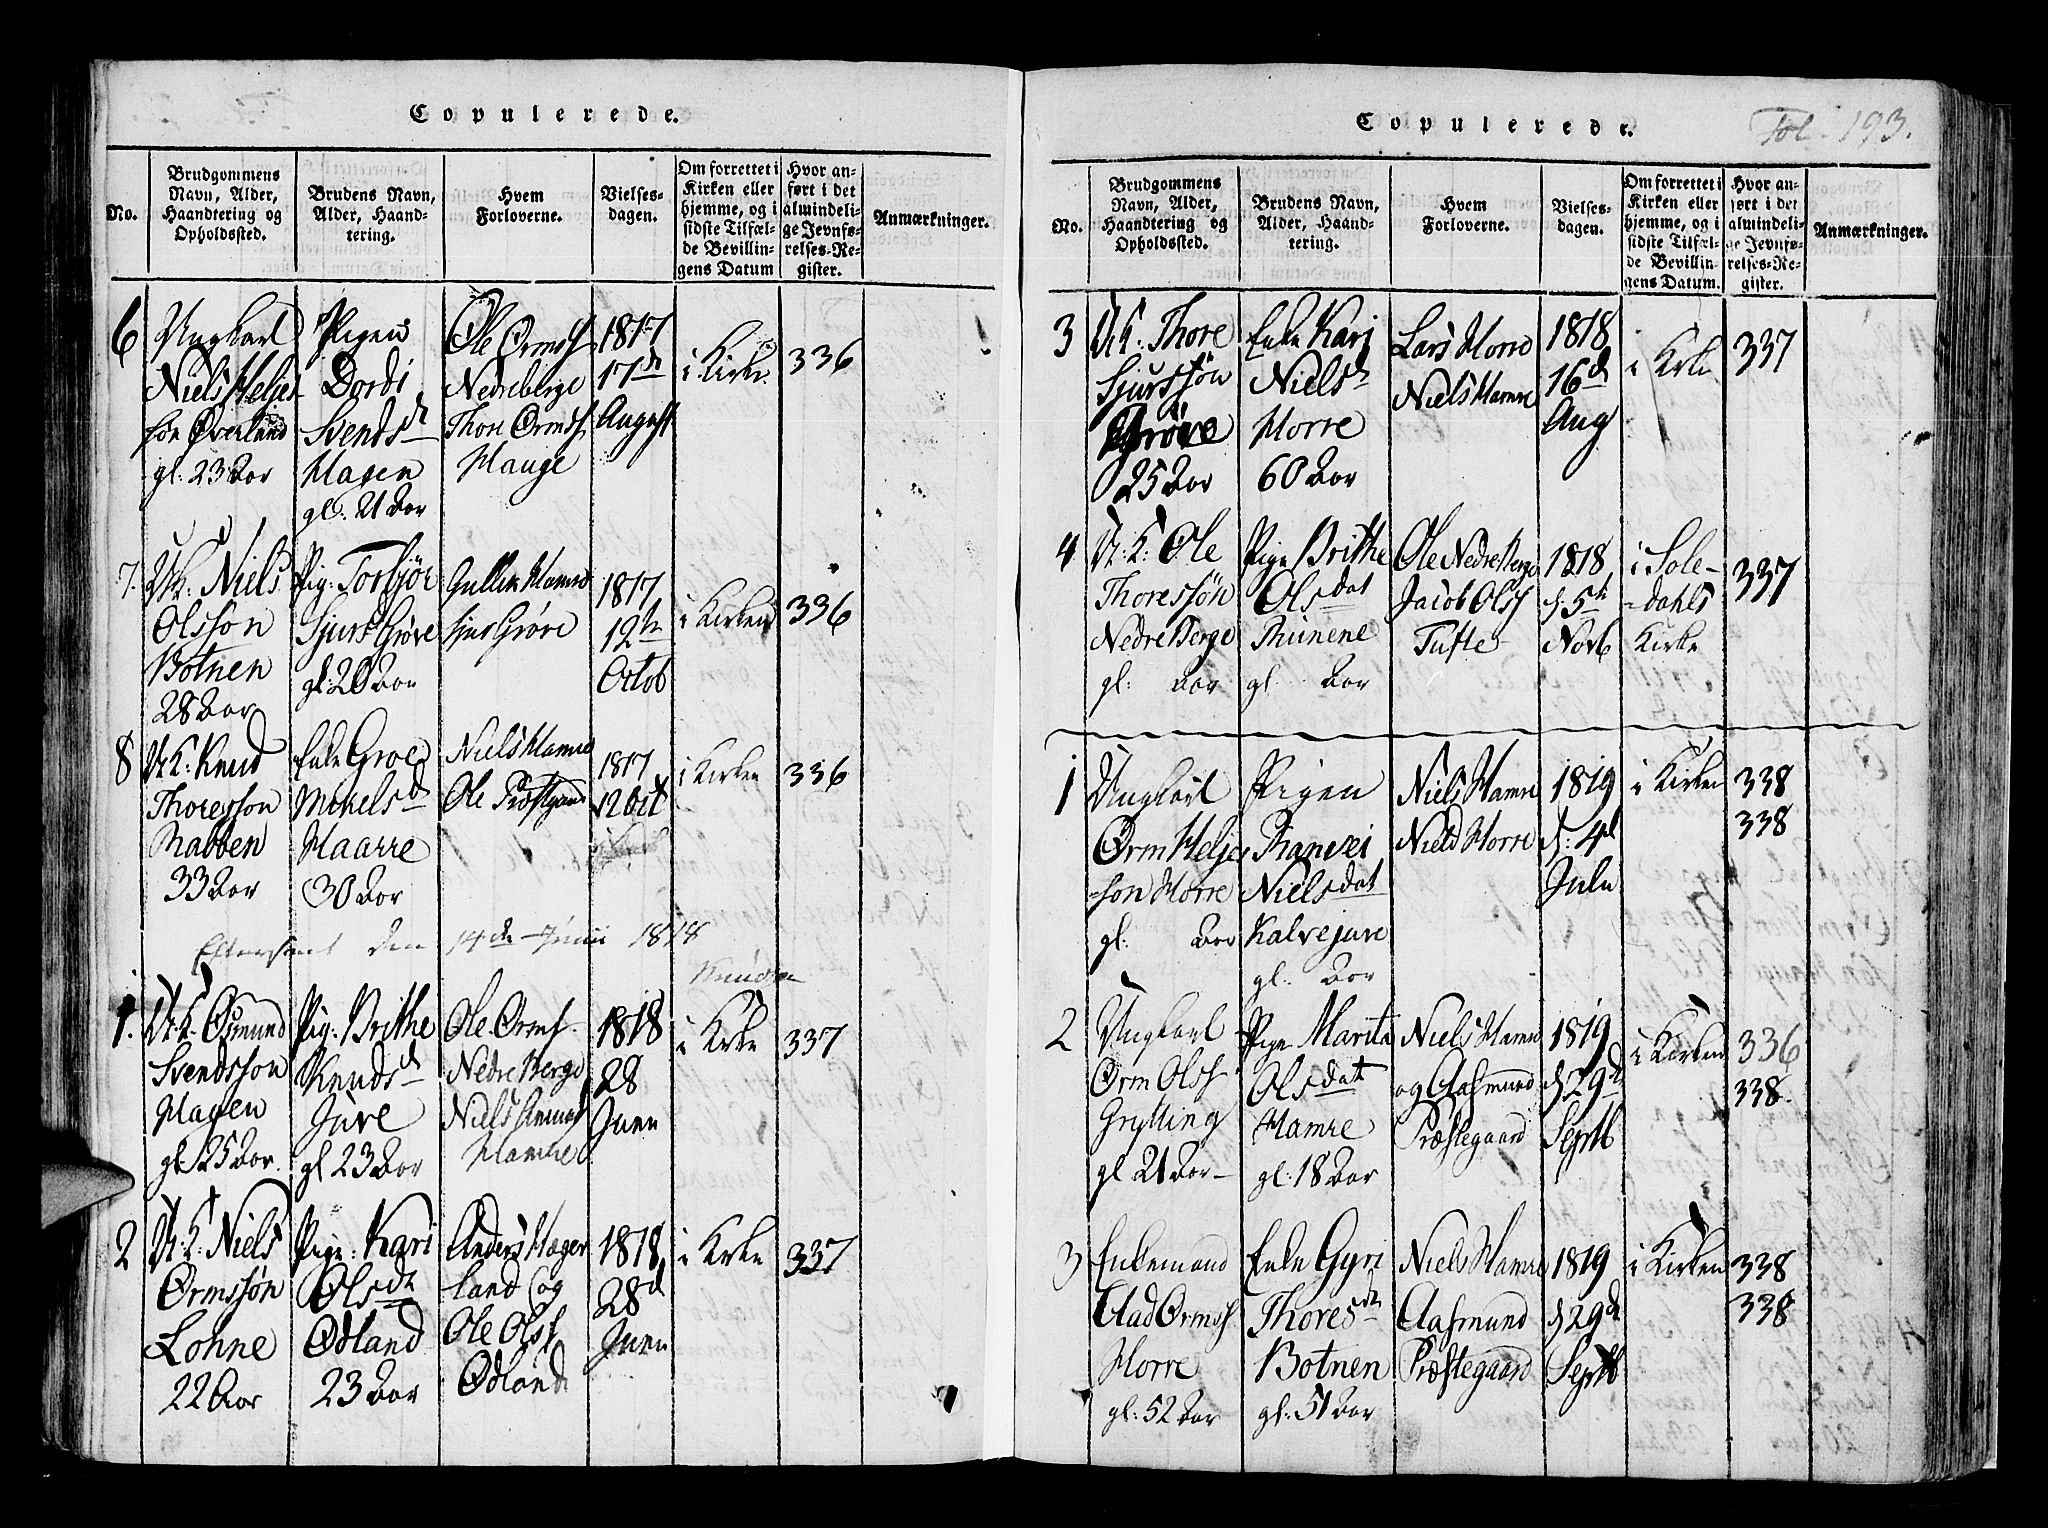 Copulerede.
No.
Brudgommens
Navn, Alder,
Haandtering og
Opholdssted.
Brudens Navn,
Alder, Haand-
tering.
Hvem
Forloverne.
Vielses-
dagen.
Om forrettet i
Kirken eller
hjemme, og i
sidste Tilfæl-
de Bevillin-
gens Datum
Hvor an-
ført i det
almindeli-
ge Jevnfø-
relses-Re-
gister.
Anmærkninger.
6
Ungkarl
Niels Heljes
søn Øverland
gl: 23 Aar
Pigen
Dordi
Svends d
Hagen
gl: 21 Aar
Ole Ormss
Nedreberge
Thore Ormds
Hauge
1817
17de
August
i Kirke
336
7.
U.K: Niels
Olsson
Botnen
28 Aar
Pig: Torbjør
Sjurs Grøve
gl: 20 Aar
Gullik Hamre
Sjur Grøve
1817
12te
Octob
i Kirken
336
8
U.K: Knud
Thoresson
Nabben
33 Aar
Enke Groe
Mikels d
Haarre
30 Aar
Niels Hamre
Ole Præstgaard
1817
12 Oct
i Kirken
336
Efterseet den 14de Junii 1818
Knudsen
1.
U.K. Osmund
Svendsson
Hagen
gl 25 Aar.
Pig: Brithe
Knuds d
Juve
gl 23 Aar
Ole Ormss.
Nedre Berge
Niels Amund
Hamre
1818
28
Juni
i Kirke
337
2
U.K: Niels
Ormssøn
Lohne
22 Aar
Pige: Kari
Ols dt
Ødland
23 Aar
Anders Hæger
land og
Ole Olss
Ødland
1818
28d
Juni
i Kirke
337
Copulerede.
Fol. 193.
No.
Brudgommens
Navn, Alder,
Haandtering og
Opholdssted.
Brudens Navn,
Alder, Haand-
tering.
Hvem
Forloverne.
Vielses-
dagen.
Om forrettet i
Kirken eller
hjemme, og i
sidste Tilfæl-
de Bevillin-
gens Datum.
Hvor an-
ført i det
almindeli-
ge Jevnfø-
relses-Re-
gister.
Anmærkninger.
3
U.K: Thore
Sjurssøn
Grøve
25 Aar
Enke Kari
Niels d
Horre
60 Aar
Lars Horre
Niels Hamre
1818
16d
Aug
i Kirke
337
4
U:K: Ole
Thoressøn
Nedre Berge
gl: Aar
Pige Brithe
Olsdat
Thunene
gl Aar
Ole Nedre Berge
Jacob Olss
Tufte
1818
d. 5te
Novb
i Sole-
-dahls
Kirke
337
1
Ungkarl
Orm Helje
-son Horre
gl: Aar
Pigen
Ranvei
Nielsdat
Kalvejuve
gl: Aar
Niels Hamre
Niels Horre
1819
d: 4d
Julii
i Kirken
338
338
2
Ungkarl
Orm Olss
Grytting
gl 21 Aar
Pige Marita
Olsdat
Hamre
gl: 18 Aar
Niels Hamre
og Aasmund
Præstegaard
1819
d 29d
Septb
i Kirken
336
338.
3
Enkemand
Elad Ormss
Horre
gl: 52 Aar
Enke Gyri
Thores dt
Botnen
gl: 51 Aar
Niels Hamre
Aasmund
Præstegaard
1819
d 29de
Septb
i Kirken
338
338